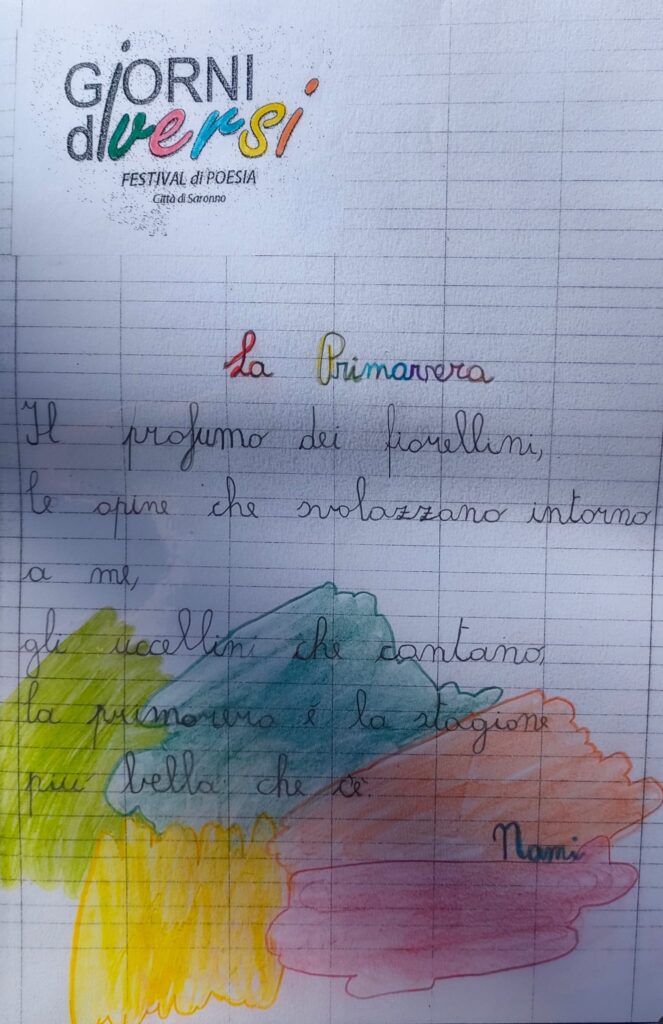 GiORNI
diversi
FESTIVAL di POESIA
Città di Saronno
La Primavera
Il profumo dei fiorellini,
le apine che svolazzano intorno
a me,
gli uccellini che cantano,
la primavera é la stagione
piú bella che c'è.
Nami